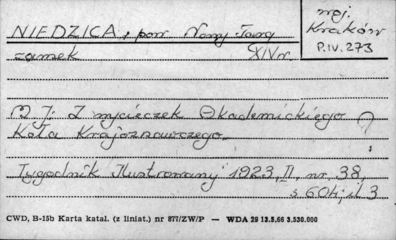 woj.
Kraków
P.IV.273
NIEDZICA, pow. Nowy Targ
zamek XIV w.
M J: Z wycieczek Akademickiego
Koła Krajoznawczego. ?
Tygodnik Ilustrowany 1923, II, nr. 38,
s 604; il 3
CWD, B-15b Karta katal. (z liniat.) nr 877/ZW/P — WDA 29 13.5.66 3.530.000